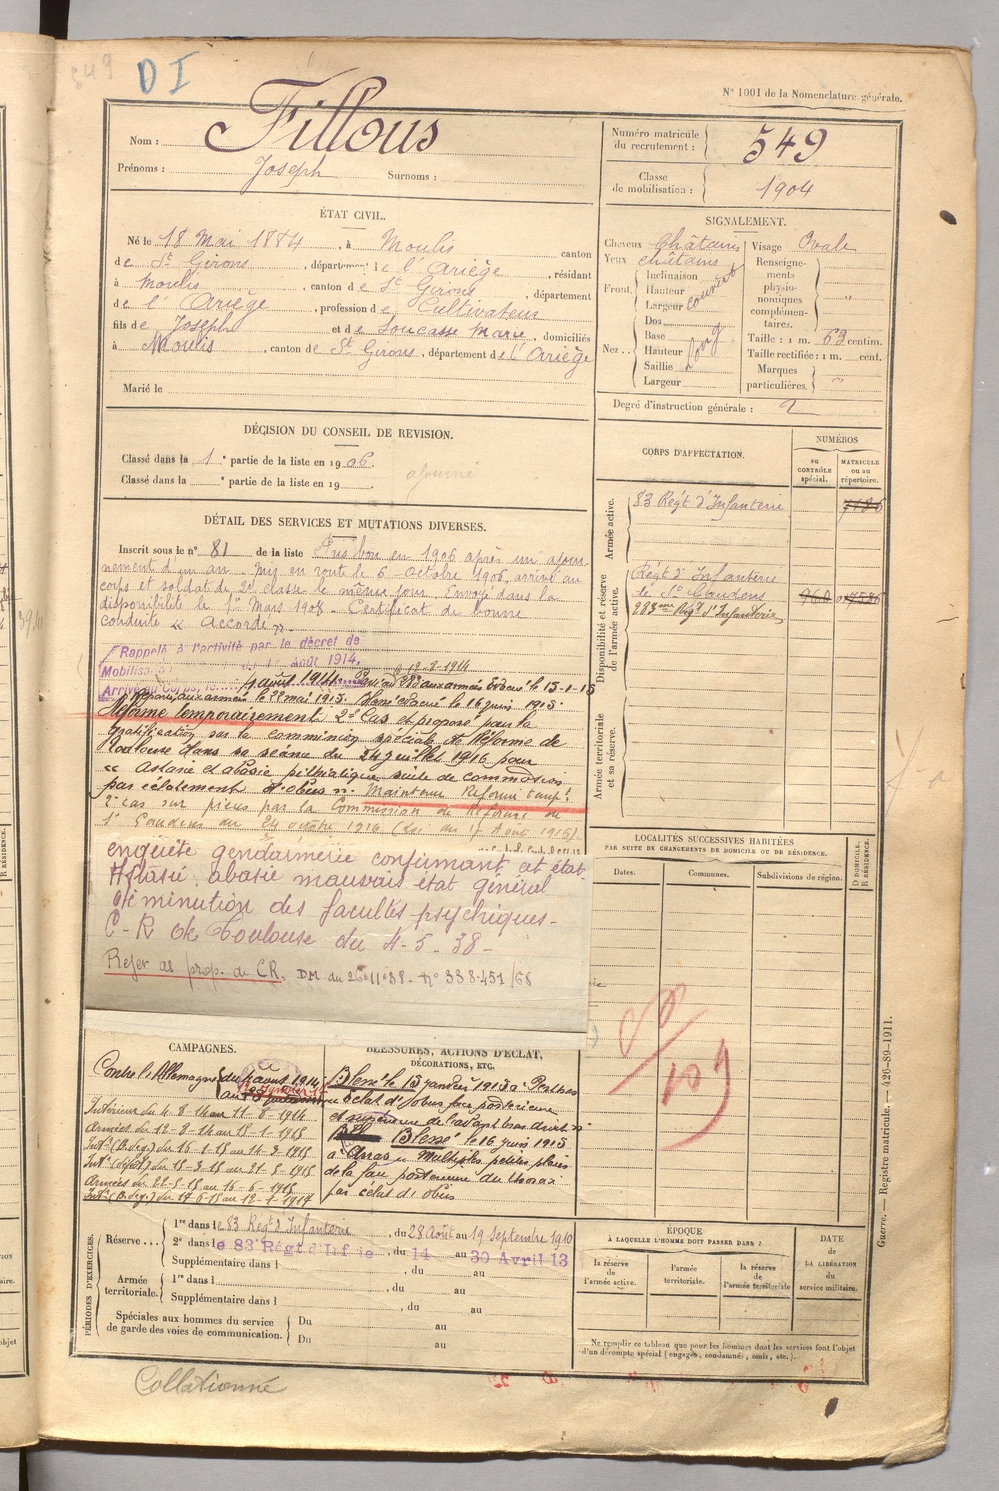 549
D I
N° 1001 de la Nomenclature générale.
Nom : Fillous
Prénoms : Joseph Surnoms :
Numéro matricule du recrutement : 549
Classe de mobilisation : 1904
ÉTAT CIVIL.
Né le 18 Mai 1884, à Moulis canton
de St Girons, département de l'Ariège, résidant
à Moulis, canton de St Girons, département
de l'Ariège, profession de Cultivateur
fils de Joseph et de Soucasse Marie, domiciliés
à Moulis, canton de St Girons, département de l'Ariège
Marié le
SIGNALEMENT.
Cheveux Châtains
Yeux châtains
Front. Inclinaison
Hauteur
Largeur couvert
Nez Dos
Base
Hauteur long
Saillie
Largeur
Visage Ovale
Renseignements physionomiques complémentaires. "
Taille : 1 m. 63 centim.
Taille rectifiée : 1 m. cent.
Marques particulières. "
Degré d'instruction générale : 2
DÉCISION DU CONSEIL DE REVISION.
Classé dans la 1e partie de la liste en 1906.
Classé dans la e partie de la liste en 19
ajourné
CORPS D'AFFECTATION.
NUMÉROS
au CONTRÔLE spécial.
MATRICULE ou au répertoire.
Armée active.
83 Régt d'Infanterie
Disponibilité et réserve de l'armée active.
Régt d'Infanterie
de St Gaudens
283me Régt d'Infanterie
Armée territoriale et sa réserve.
DÉTAIL DES SERVICES ET MUTATIONS DIVERSES.
Inscrit sous le n° 81 de la liste Pris bon en 1906 après un ajour-
nement d'un an. Mis en route le 6 octobre 1906, arrivé au
corps et soldat de 2e classe le même jour. Envoyé dans la
disponibilité le 1er Mars 1908. Certificat de bonne
conduite « Accordé ».
Rappelé à l'activité par le décret de
Mobilisation du 1er août 1914.
Arrivé au Corps, le 4 août 1914. Passé au 283 aux armées Evacué le 15-1-15
le 12-8-1914
Reparti aux armées le 22 mai 1915. Blessé évacué le 16 juin 1915.
Réformé temporairement 2e Cas et proposé pour la
gratification par la commission spéciale de Réforme de
Toulouse dans sa séance du 24 juillet 1916 pour
« Astasie et abasie pithiatique suite de commotion
par éclatement d'obus ». Maintenu Réformé tempre
2e cas sur pièces par la Commission de Réforme de
St Gaudens du 24 octobre 1916 (Loi du 17 Août 1915).
enquête gendarmerie confirmant cet état.
Astasie abasie mauvais état général
diminution des facultés psychiques-
C-R de Toulouse du 4-5-38-
Rejet as prop. de CR. DM du 25-11-38. N° 338-451/68
LOCALITÉS SUCCESSIVES HABITÉES
PAR SUITE DE CHANGEMENTS DE DOMICILE OU DE RÉSIDENCE.
Dates. Communes. Subdivisions de région. D DOMICILE. R RÉSIDENCE.
CAMPAGNES.
Contre l'Allemagne du 4 août 1914
Intérieur du 4-8-14 au 11-8-1914
Armées du 12-8-14 au 15-1-1915
Intr (B. Seg.) du 16-1-15 au 14-3-1915
Intr (dépôt) du 15-3-15 au 21-5-1915
Armées du 22-5-15 au 16-6-1915
Intr (B. Seg.) du 17-6-15 au 12-1-1917
BLESSURES, ACTIONS D'ÉCLAT, DÉCORATIONS, ETC.
Blessé le 15 janvier 1915 à Perthes
« Eclat d'obus face postérieure
et supérieure de l'avant bras droit »
Blessé le 16 juin 1915
à Arras « Multiples petites plaies
de la face postérieure du thorax
par éclat d'obus
PÉRIODES D'EXERCICES.
Réserve ... 1re dans le 83 Régt d'Infanterie, du 28 Août au 19 Septembre 1910
2e dans le 83e Régt d'Inf ie, du 14 au 30 Avril 13
Supplémentaire dans l , du au
Armée territoriale. 1re dans l , du au
Supplémentaire dans l , du au
Spéciales aux hommes du service de garde des voies de communication. Du au
Du au
ÉPOQUE
À LAQUELLE L'HOMME DOIT PASSER DANS :
la réserve de l'armée active.
l'armée territoriale.
la réserve de l'armée territoriale
DATE de LA LIBÉRATION du service militaire.
Ne remplir ce tableau que pour les hommes dont les services font l'objet
d'un décompte spécial (engagés, condamnés, omis, etc.).
Guerre. — Registre matricule. — 426-89-1911.
Collationné